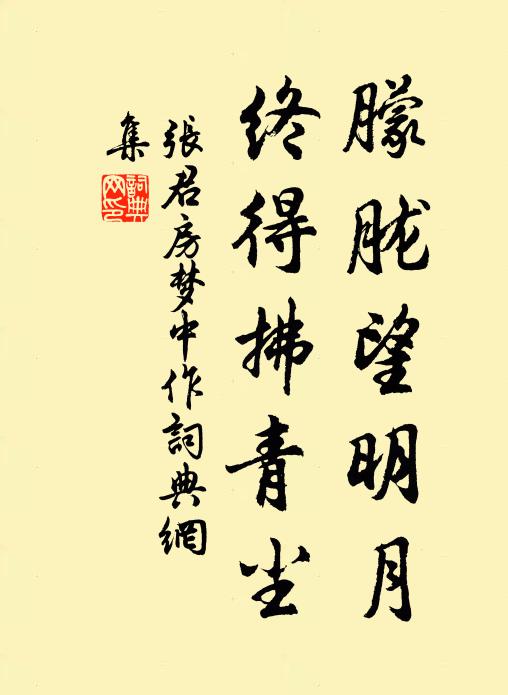 朦胧望明月
终得拂青尘
張君房梦中作詞典網
集
詞典
网印